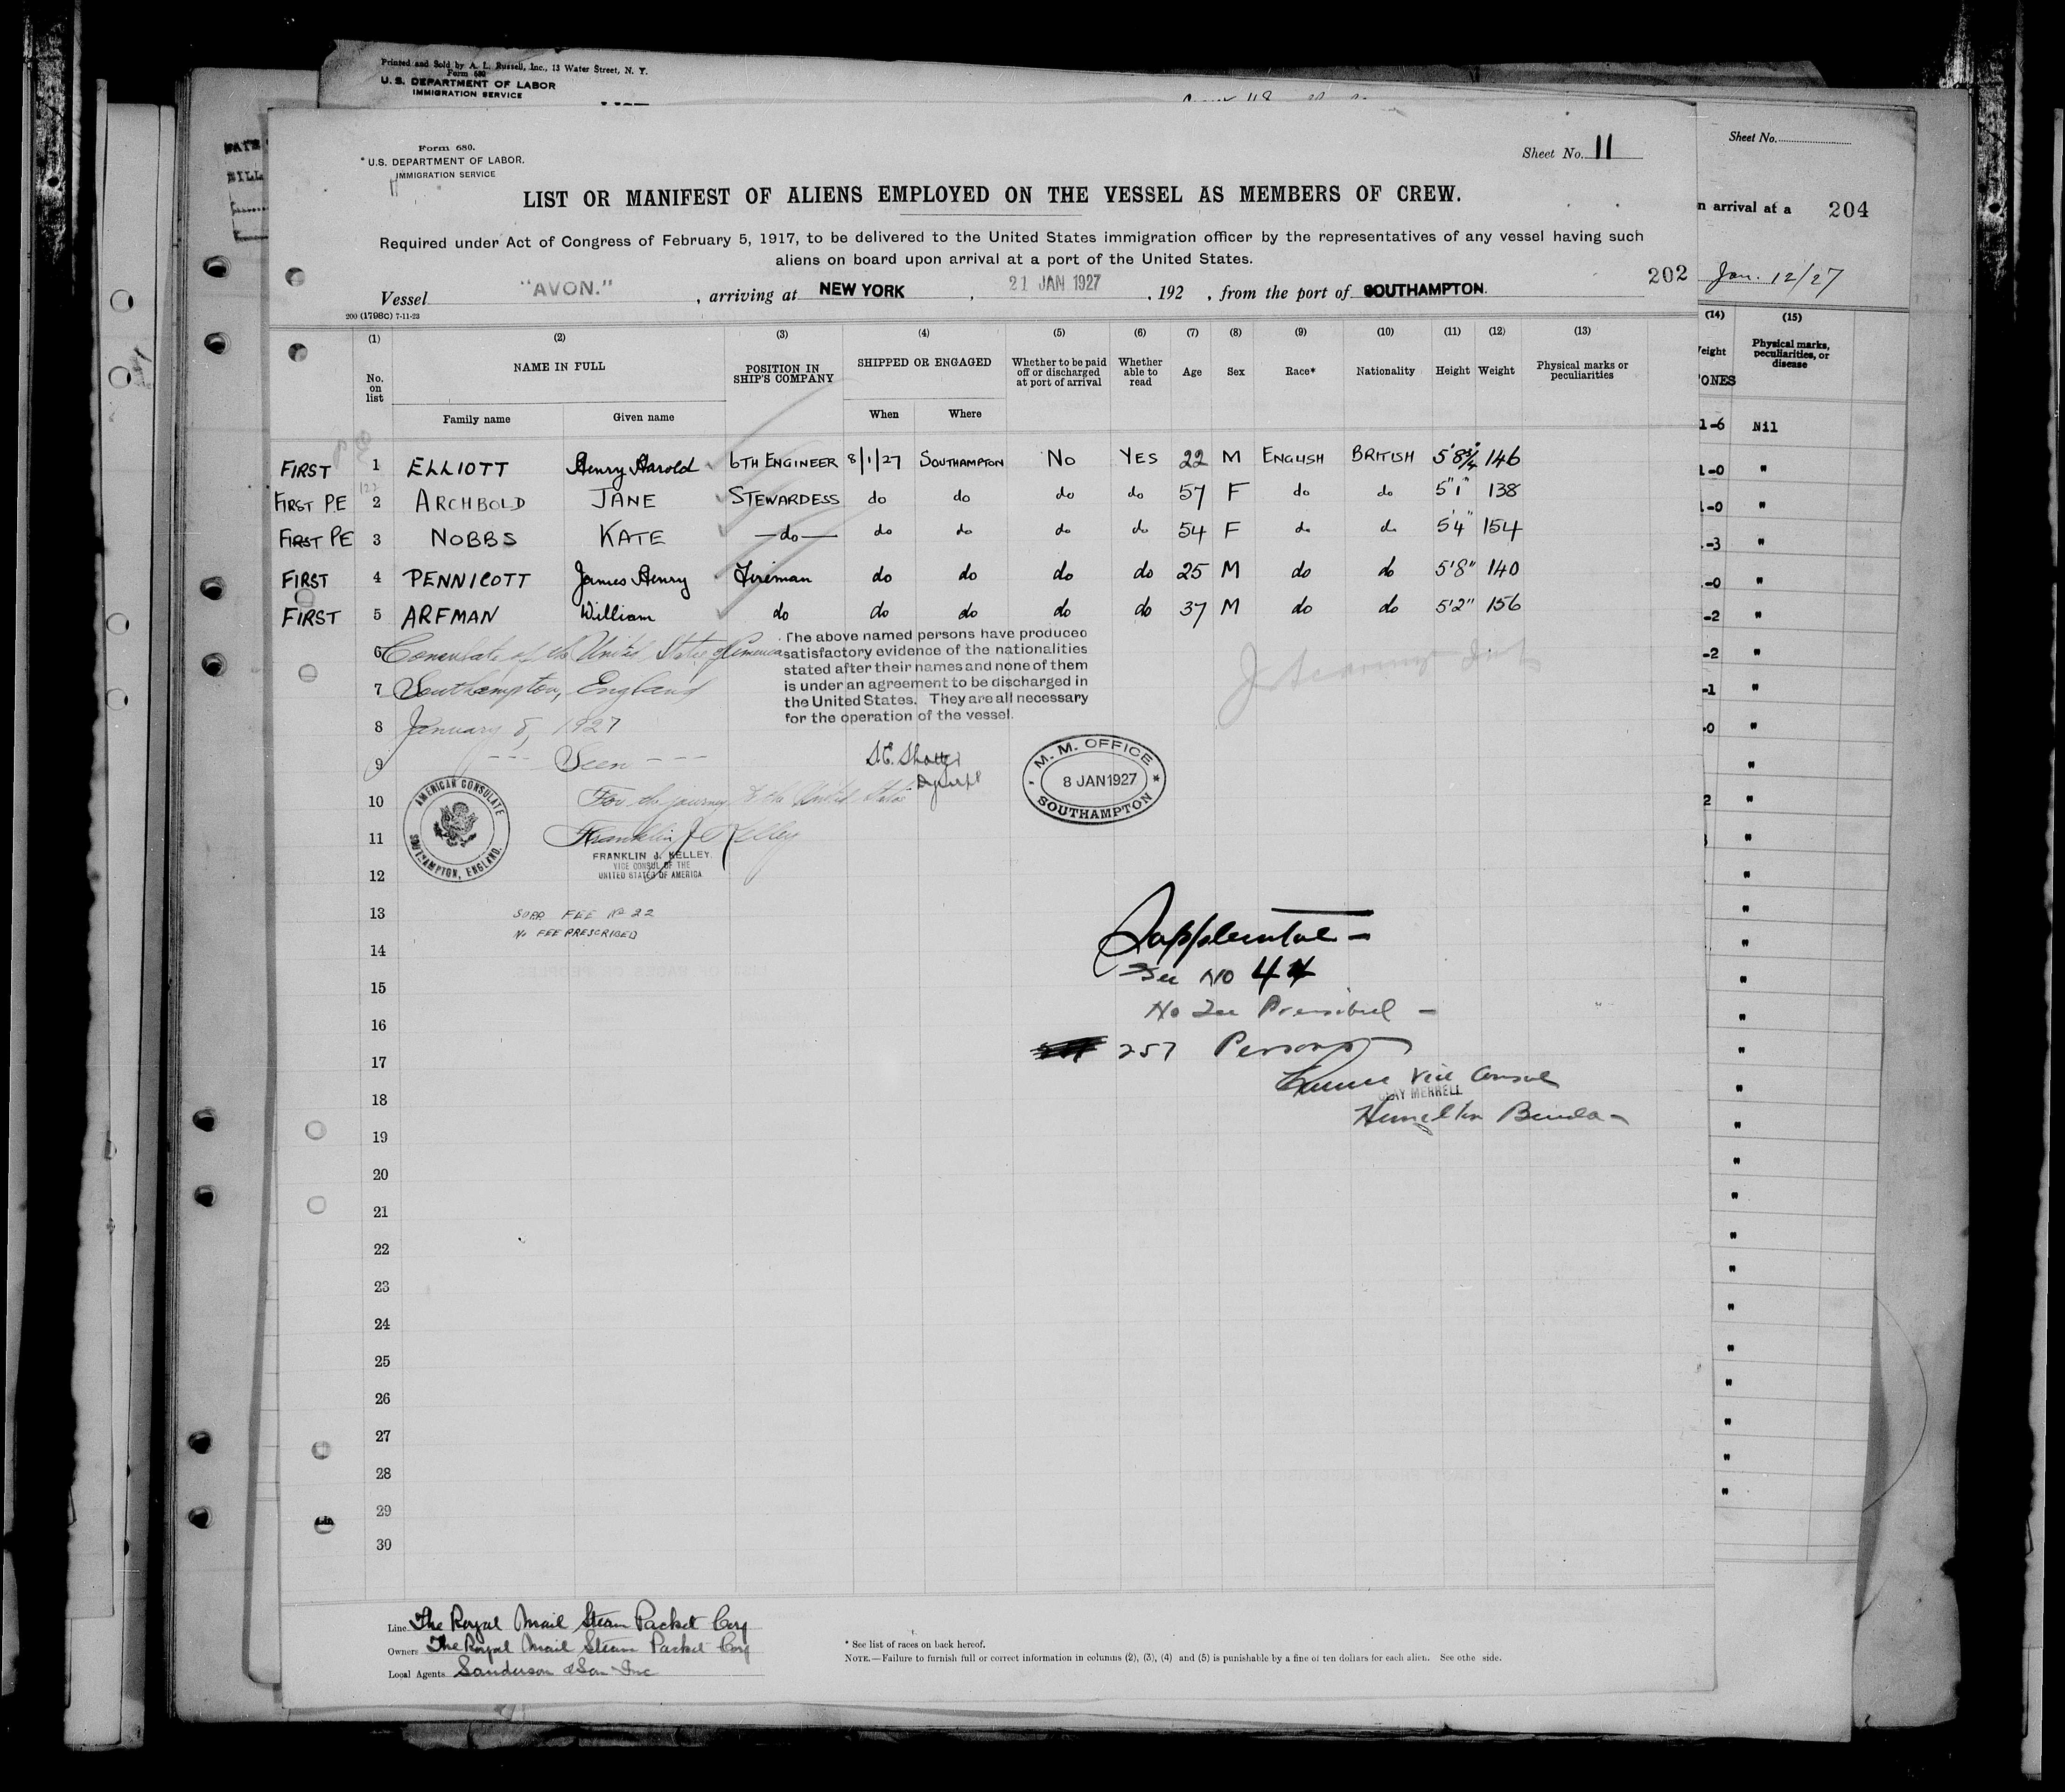 Printed and Sold by A. L. Russell, Inc., 13 Water Street, N. Y.
Form 680
U. S. DEPARTMENT OF LABOR
IMMIGRATION SERVICE
Form 680.
U.S. DEPARTMENT OF LABOR.
IMMIGRATION SERVICE
Sheet No. 11
Sheet No.
LIST OR MANIFEST OF ALIENS EMPLOYED ON THE VESSEL AS MEMBERS OF CREW.
n arrival at a 204
Required under Act of Congress of February 5, 1917, to be delivered to the United States immigration officer by the representatives of any vessel having such
aliens on board upon arrival at a port of the United States.
202
Jan. 12/27
Vessel "AVON.", arriving at NEW YORK, 21 JAN 1927, 192 , from the port of SOUTHAMPTON.
200 (1798c) 7-11-23
(1) (2) (3) (4) (5) (6) (7) (8) (9) (10) (11) (12) (13)
No. on list
NAME IN FULL
Family name
Given name
POSITION IN SHIP'S COMPANY
SHIPPED OR ENGAGED
When
Where
Whether to be paid off or discharged at port of arrival
Whether able to read
Age
Sex
Race*
Nationality
Height
Weight
Physical marks or peculiarities
(14) (15)
eight
ONES
Physical marks, peculiarities, or disease
FIRST 1 ELLIOTT Henry Harold 6TH ENGINEER 8/1/27 SOUTHAMPTON No YES 22 M ENGLISH BRITISH 5'8¾" 146
FIRST P.E 2 ARCHBOLD JANE STEWARDESS do do do do 57 F do do 5"1" 138
FIRST PE 3 NOBBS KATE —do— do do do do 54 F do do 5'4" 154
FIRST 4 PENNICOTT James Henry Fireman do do do do 25 M do do 5'8" 140
FIRST 5 ARFMAN William do do do do do 37 M do do 5'2" 156
1-6 Nil
1-0 "
1-0 "
-3 "
-0 "
-2 "
-2 "
-1 "
-0 "
6 Consulate of the United States of America
7 Southampton, England
8 January 8, 1927
9 --- Seen ---
10 For the journey to the United States
11 Franklin J Kelley
FRANKLIN J. KELLEY.
VICE CONSUL OF THE
UNITED STATES OF AMERICA
12
AMERICAN CONSULATE
SOUTHAMPTON, ENGLAND.
The above named persons have produced
satisfactory evidence of the nationalities
stated after their names and none of them
is under an agreement to be discharged in
the United States. They are all necessary
for the operation of the vessel.
M. M. OFFICE
8 JAN 1927
SOUTHAMPTON
13 SUPP. FEE No 22
No FEE PRESCRIBED
14
15
16
17
18
19
20
21
22
23
24
25
26
27
28
29
30
Supplemtal -
Fee No 44
No Fee Prescribed -
257 Persons
Vice Consul
CLAY MERRELL
Hamilton Bermuda -
Line The Royal Mail Steam Packet Coy
Owners The Royal Mail Steam Packet Coy
Local Agents Sanderson & Son Inc
* See list of races on back hereof.
NOTE.—Failure to furnish full or correct information in columns (2), (3), (4) and (5) is punishable by a fine of ten dollars for each alien. See othe side.